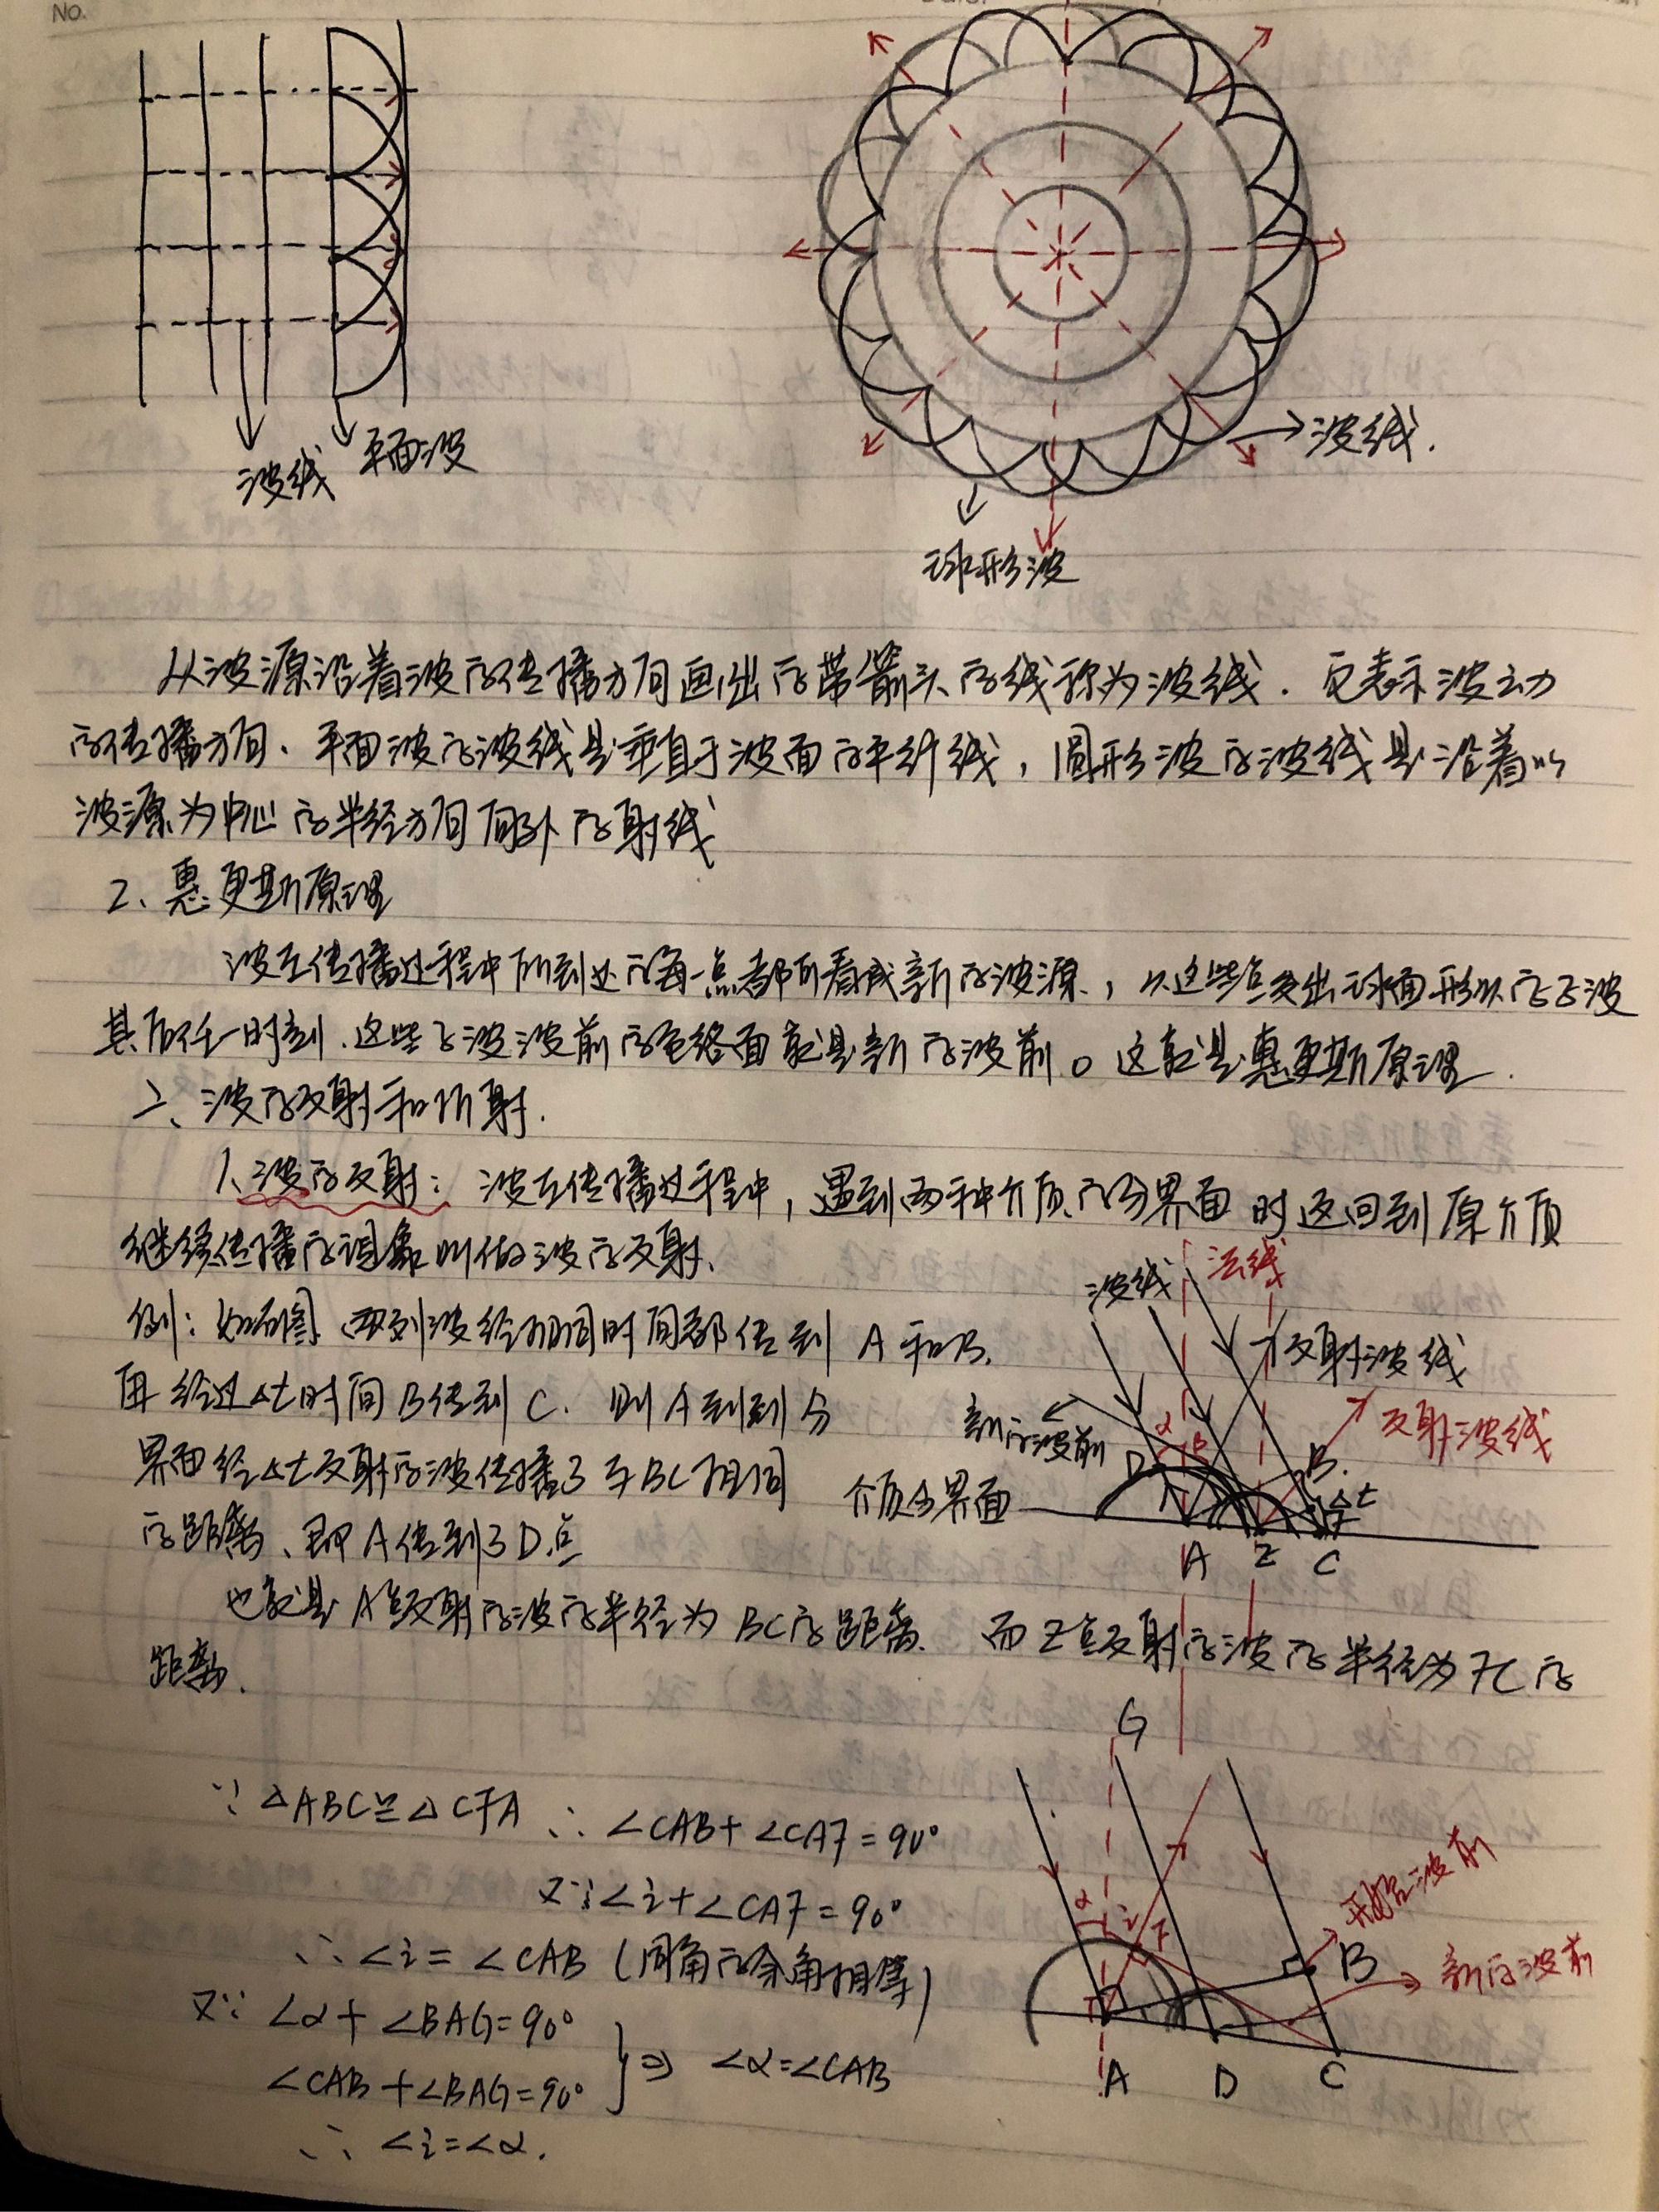 No.
波线 平面波
波线.
球形波
从波源沿着波的传播方向画出的带箭头的线称为波线. 它表示波动
的传播方向、平面波的波线是垂直于波面的平行线, 圆形波的波线是沿着以
波源为中心的半径方向向外的射线
2、惠更斯原理
波在传播过程中所到处的每一点都可看成新的波源, 从这些点发出球面形状的子波
其后任一时刻.这些子波波前的包络面就是新的波前。这就是惠更斯原理.
二、波的反射和折射.
1、波的反射: 波在传播过程中, 遇到两种介质的分界面时返回到原介质
继续传播的现象叫做波的反射、
波线 法线
例: 如右图、两列波经相同时间都传到 A 和B.
反射波线
再经过△t时间B传到C. 则A到到分
新的波前 α β D B. 反射波线
界面经△t反射的波传播了与BC相同
介质分界面 △t
的距离、即A传到了D点
A Z C
也就是A点反射的波的半径为BC的距离. 而Z点反射的波的半径为FC的
距离.
G
∵ △ABC≌△CFA ∴ ∠CAB+∠CAF=90°
又∵∠i+∠CAF=90°
α i F 开始波前
∴ ∠i=∠CAB (同角的余角相等)
B 新的波前
又∵ ∠α+∠BAG=90°
∠CAB+∠BAG=90° } ⇒ ∠α=∠CAB
A D C
∴ ∠i=∠α.